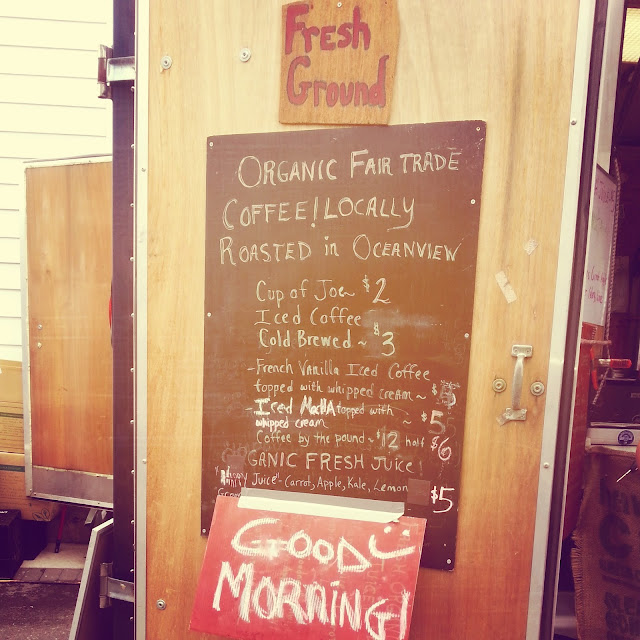 Fresh
Ground
ORGANIC FAIR TRADE
COFFEE! LOCALLY
ROASTED in OCEANVIEW
Cup of Joe ~ $2
Iced Coffee
Cold Brewed ~ $3
- French Vanilla Iced Coffee
topped with whipped cream ~
- Iced topped with
whipped cream ~ $5
Coffee by the pound ~ $12 half $6
GANIC FRESH JUICE!
Juice - Carrot, Apple, Kale, Lemon $5
GOOD
MORNING!